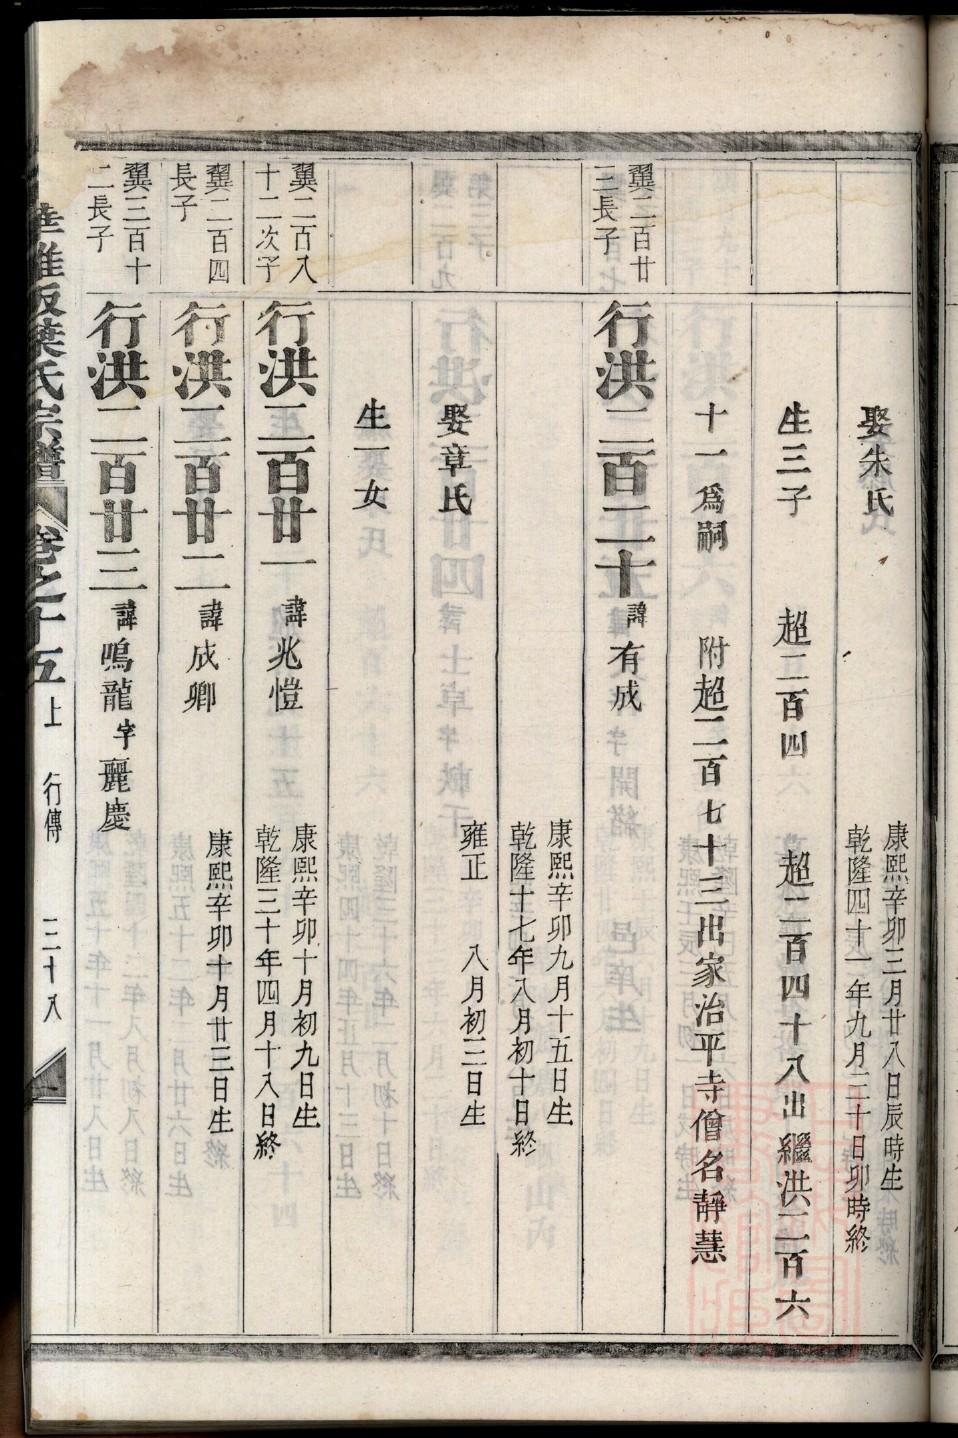 娶朱氏
康熙辛卯三月廿八日辰時生
乾隆四十一年九月二十日卯時終
生三子 超二百四 超二百四十八出繼洪二百六
十一爲嗣 附超二百七十三出家治平寺僧名靜慧
翼二百廿
三長子
行洪二百二十 諱有成
康熙辛卯九月十五日生
乾隆十七年八月初十日終
娶章氏
雍正 八月初三日生
生一女
翼二百八
十二次子
行洪二百廿一 諱兆愷
康熙辛卯十月初九日生
乾隆三十年四月十八日終
翼二百四
長子
行洪二百廿二 諱成卿
康熙辛卯十月廿三日生
翼三百十
二長子
行洪二百廿三 諱鳴龍字麗慶
葉氏宗譜 卷之十五上 行傳 三十八